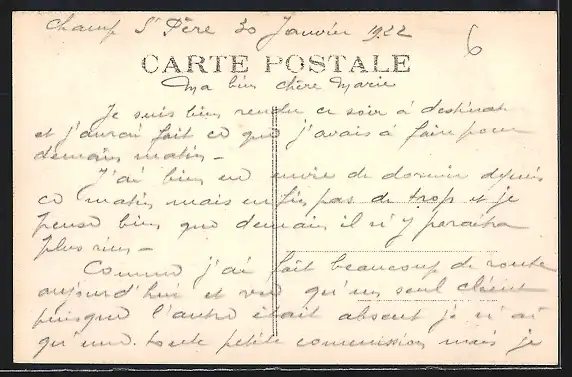 Champ St Père 30 Janvier 1922
6
CARTE POSTALE
Ma bien chère Marie
Je suis bien rendu ce soir à destinat
et j'aurai fait ce que j'avais à faire pour
demain matin –
J'ai bien eu envie de dormir depuis
ce matin mais enfin pas de trop et je
pense bien que demain il n'y paraitra
plus rien –
Comme j'ai fait beaucoup de route
aujourd'hui et vu qu'un seul client
puisque l'autre était absent je n'ai
qu'une toute petite commission mais je